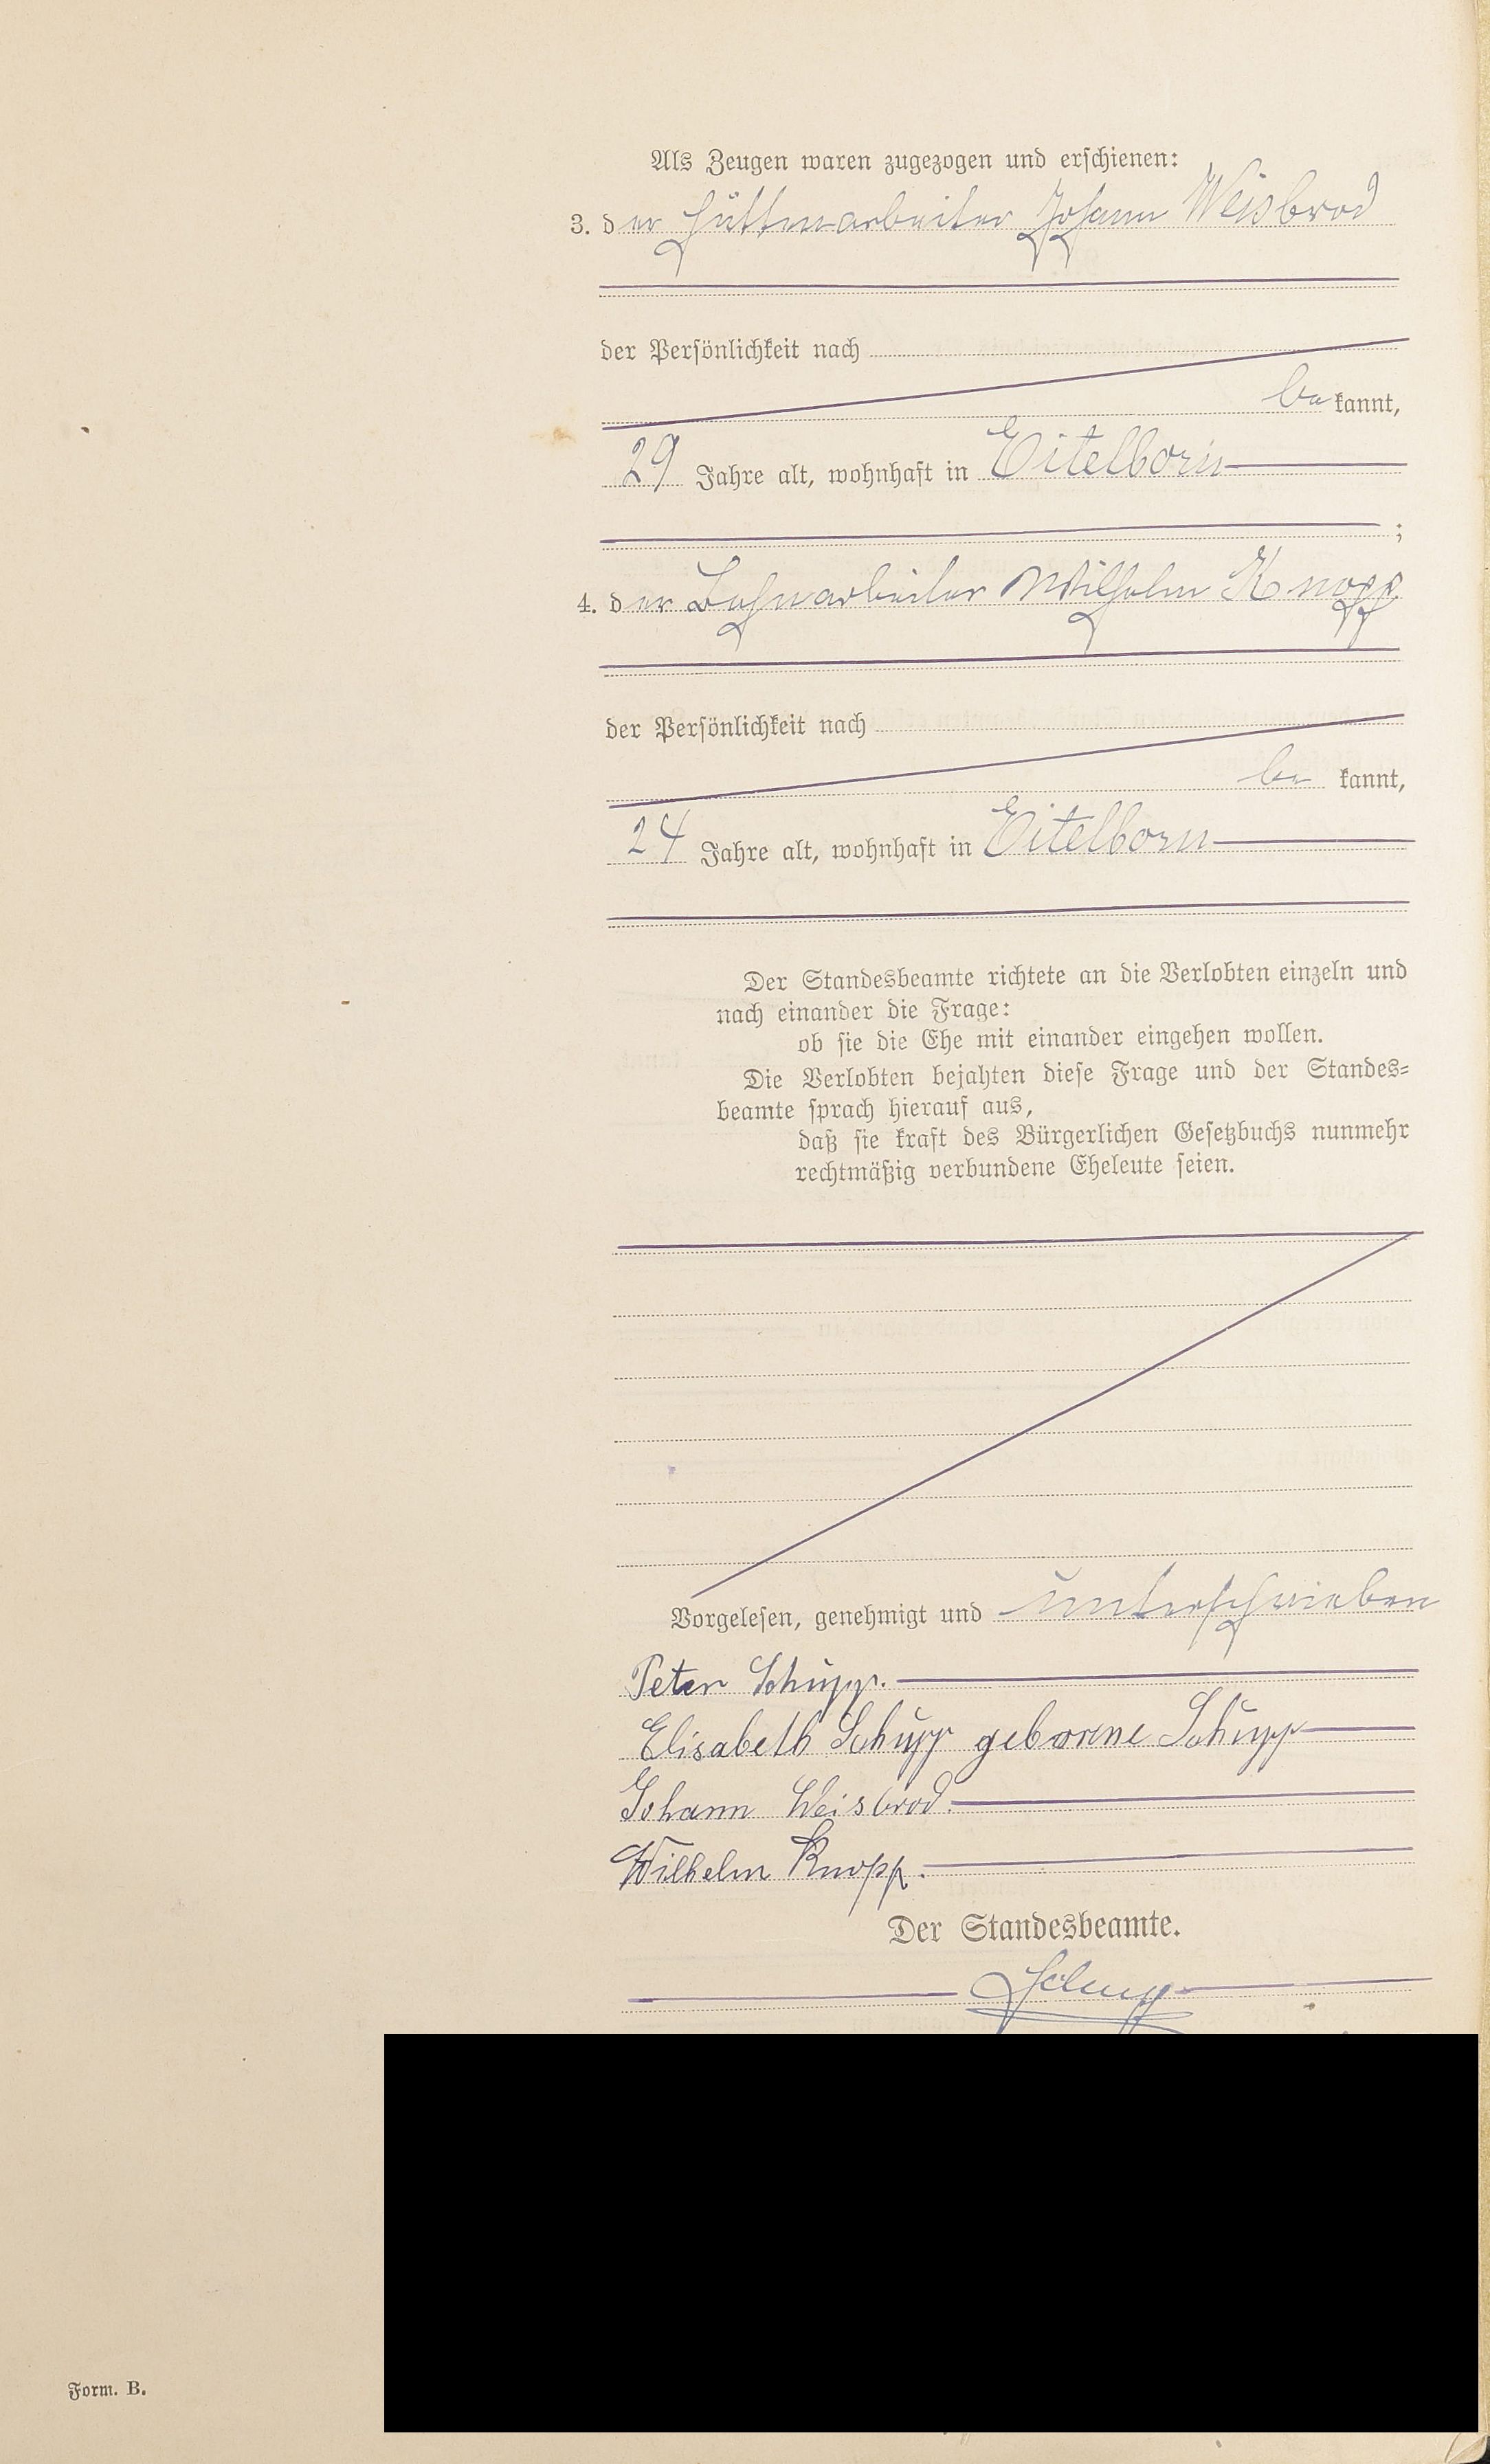 Als Zeugen waren zugezogen und erschienen:
3. der Hüttenarbeiter Johann Weisbrod
der Persönlichkeit nach
be kannt,
29 Jahre alt, wohnhaft in Eitelborn
;
4. der Wilhelm Knopp
der Persönlichkeit nach
be kannt,
24 Jahre alt, wohnhaft in Eitelborn
Der Standesbeamte richtete an die Verlobten einzeln und
nach einander die Frage:
ob sie die Ehe mit einander eingehen wollen.
Die Verlobten bejahten diese Frage und der Standes-
beamte sprach hierauf aus,
daß sie kraft des Bürgerlichen Gesetzbuchs nunmehr
rechtmäßig verbundene Eheleute seien.
Vorgelesen, genehmigt und unterschrieben
Peter Schupp.
Elisabeth Schupp geborene Schupp
Johann Weisbrod.
Wilhelm Knopp.
Der Standesbeamte.
Form. B.